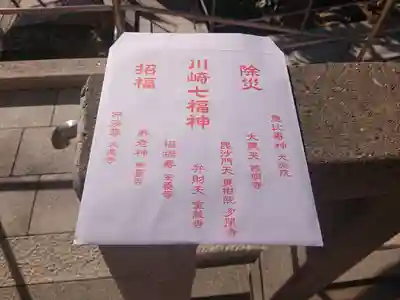 除災
川崎七福神
招福
恵比寿神 大楽院
大黒天 西明寺
毘沙門天 東樹院 多聞寺
弁財天 宝蔵寺
福禄寿 安養寺
寿老神 無量寺
大楽寺